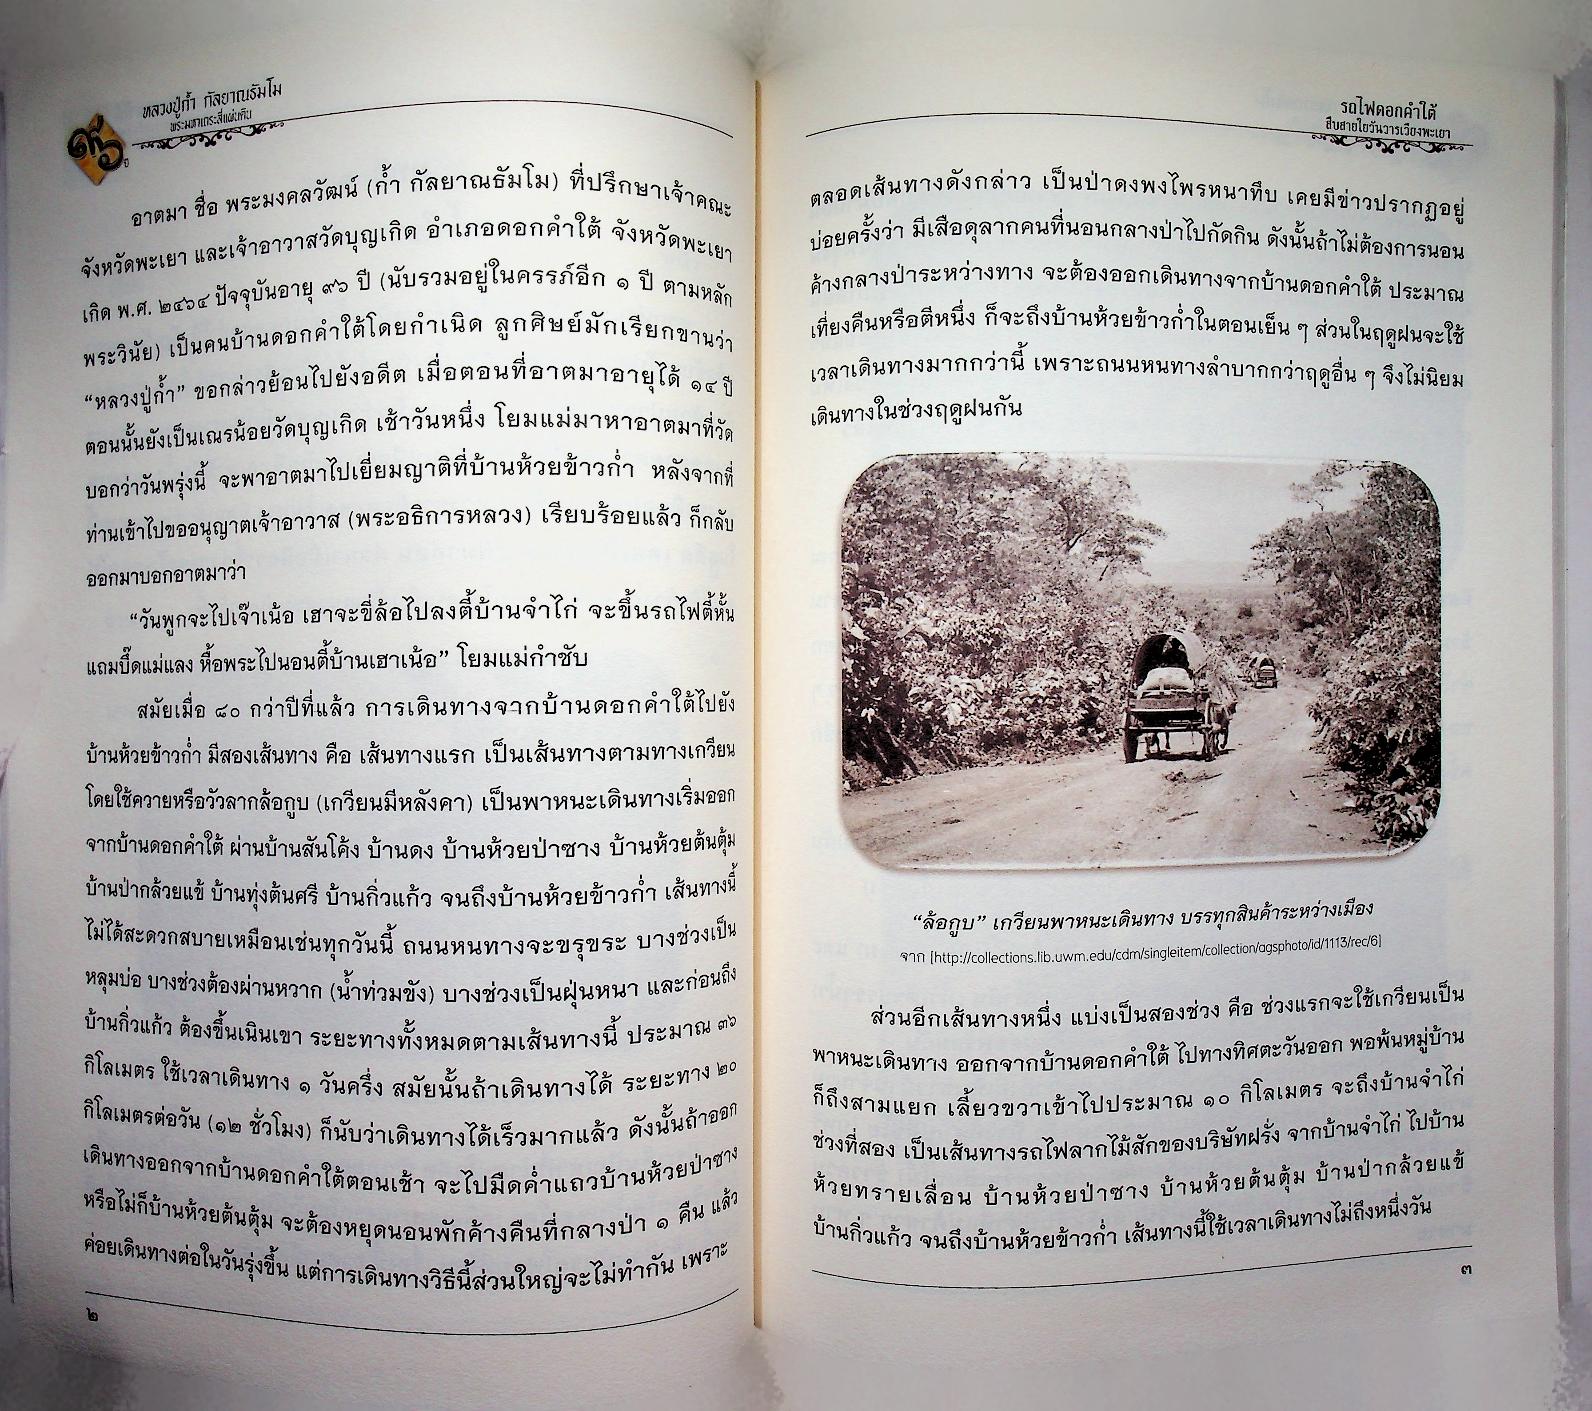 หลวงปู่ก้ำ กัลยาณธัมโม
พระมหาเถระสี่แผ่นดิน
๙๖ ปี
อาตมา ชื่อ พระมงคลวัฒน์ (ก้ำ กัลยาณธัมโม) ที่ปรึกษาเจ้าคณะ
จังหวัดพะเยา และเจ้าอาวาสวัดบุญเกิด อำเภอดอกคำใต้ จังหวัดพะเยา
เกิด พ.ศ. ๒๔๖๔ ปัจจุบันอายุ ๙๖ ปี (นับรวมอยู่ในครรภ์อีก ๑ ปี ตามหลัก
พระวินัย) เป็นคนบ้านดอกคำใต้โดยกำเนิด ลูกศิษย์มักเรียกขานว่า
“หลวงปู่ก้ำ” ขอกล่าวย้อนไปยังอดีต เมื่อตอนที่อาตมาอายุได้ ๑๔ ปี
ตอนนั้นยังเป็นเณรน้อยวัดบุญเกิด เช้าวันหนึ่ง โยมแม่มาหาอาตมาที่วัด
บอกว่าวันพรุ่งนี้ จะพาอาตมาไปเยี่ยมญาติที่บ้านห้วยข้าวก่ำ หลังจากที่
ท่านเข้าไปขออนุญาตเจ้าอาวาส (พระอธิการหลวง) เรียบร้อยแล้ว ก็กลับ
ออกมาบอกอาตมาว่า
“วันพูกจะไปเจ๊าเน้อ เฮาจะขี่ล้อไปลงตี้บ้านจำไก่ จะขึ้นรถไฟตี้หั้น
แถมบึ๊ดแม่แลง หื้อพระไปนอนตี้บ้านเฮาเน้อ” โยมแม่กำชับ
สมัยเมื่อ ๘๐ กว่าปีที่แล้ว การเดินทางจากบ้านดอกคำใต้ไปยัง
บ้านห้วยข้าวก่ำ มีสองเส้นทาง คือ เส้นทางแรก เป็นเส้นทางตามทางเกวียน
โดยใช้ควายหรือวัวลากล้อกูบ (เกวียนมีหลังคา) เป็นพาหนะเดินทางเริ่มออก
จากบ้านดอกคำใต้ ผ่านบ้านสันโค้ง บ้านดง บ้านห้วยป่าซาง บ้านห้วยต้นตุ้ม
บ้านป่ากล้วยแข้ บ้านทุ่งต้นศรี บ้านกิ่วแก้ว จนถึงบ้านห้วยข้าวก่ำ เส้นทางนี้
ไม่ได้สะดวกสบายเหมือนเช่นทุกวันนี้ ถนนหนทางจะขรุขระ บางช่วงเป็น
หลุมบ่อ บางช่วงต้องผ่านหวาก (น้ำท่วมขัง) บางช่วงเป็นฝุ่นหนา และก่อนถึง
บ้านกิ่วแก้ว ต้องขึ้นเนินเขา ระยะทางทั้งหมดตามเส้นทางนี้ ประมาณ ๓๖
กิโลเมตร ใช้เวลาเดินทาง ๑ วันครึ่ง สมัยนั้นถ้าเดินทางได้ ระยะทาง ๒๐
กิโลเมตรต่อวัน (๑๒ ชั่วโมง) ก็นับว่าเดินทางได้เร็วมากแล้ว ดังนั้นถ้าออก
เดินทางออกจากบ้านดอกคำใต้ตอนเช้า จะไปมืดค่ำแถวบ้านห้วยป่าซาง
หรือไม่ก็บ้านห้วยต้นตุ้ม จะต้องหยุดนอนพักค้างคืนที่กลางป่า ๑ คืน แล้ว
ค่อยเดินทางต่อในวันรุ่งขึ้น แต่การเดินทางวิธีนี้ส่วนใหญ่จะไม่ทำกัน เพราะ
๒
รถไฟดอกคำใต้
สืบสายใยวันวารเวียงพะเยา
ตลอดเส้นทางดังกล่าว เป็นป่าดงพงไพรหนาทึบ เคยมีข่าวปรากฏอยู่
บ่อยครั้งว่า มีเสือดุลากคนที่นอนกลางป่าไปกัดกิน ดังนั้นถ้าไม่ต้องการนอน
ค้างกลางป่าระหว่างทาง จะต้องออกเดินทางจากบ้านดอกคำใต้ ประมาณ
เที่ยงคืนหรือตีหนึ่ง ก็จะถึงบ้านห้วยข้าวก่ำในตอนเย็น ๆ ส่วนในฤดูฝนจะใช้
เวลาเดินทางมากกว่านี้ เพราะถนนหนทางลำบากกว่าฤดูอื่น ๆ จึงไม่นิยม
เดินทางในช่วงฤดูฝนกัน
“ล้อกูบ” เกวียนพาหนะเดินทาง บรรทุกสินค้าระหว่างเมือง
จาก [http://collections.lib.uwm.edu/cdm/singleitem/collection/agsphoto/id/1113/rec/6]
ส่วนอีกเส้นทางหนึ่ง แบ่งเป็นสองช่วง คือ ช่วงแรกจะใช้เกวียนเป็น
พาหนะเดินทาง ออกจากบ้านดอกคำใต้ ไปทางทิศตะวันออก พอพ้นหมู่บ้าน
ก็ถึงสามแยก เลี้ยวขวาเข้าไปประมาณ ๑๐ กิโลเมตร จะถึงบ้านจำไก่
ช่วงที่สอง เป็นเส้นทางรถไฟลากไม้สักของบริษัทฝรั่ง จากบ้านจำไก่ ไปบ้าน
ห้วยทรายเลื่อน บ้านห้วยป่าซาง บ้านห้วยต้นตุ้ม บ้านป่ากล้วยแข้
บ้านกิ่วแก้ว จนถึงบ้านห้วยข้าวก่ำ เส้นทางนี้ใช้เวลาเดินทางไม่ถึงหนึ่งวัน
๓